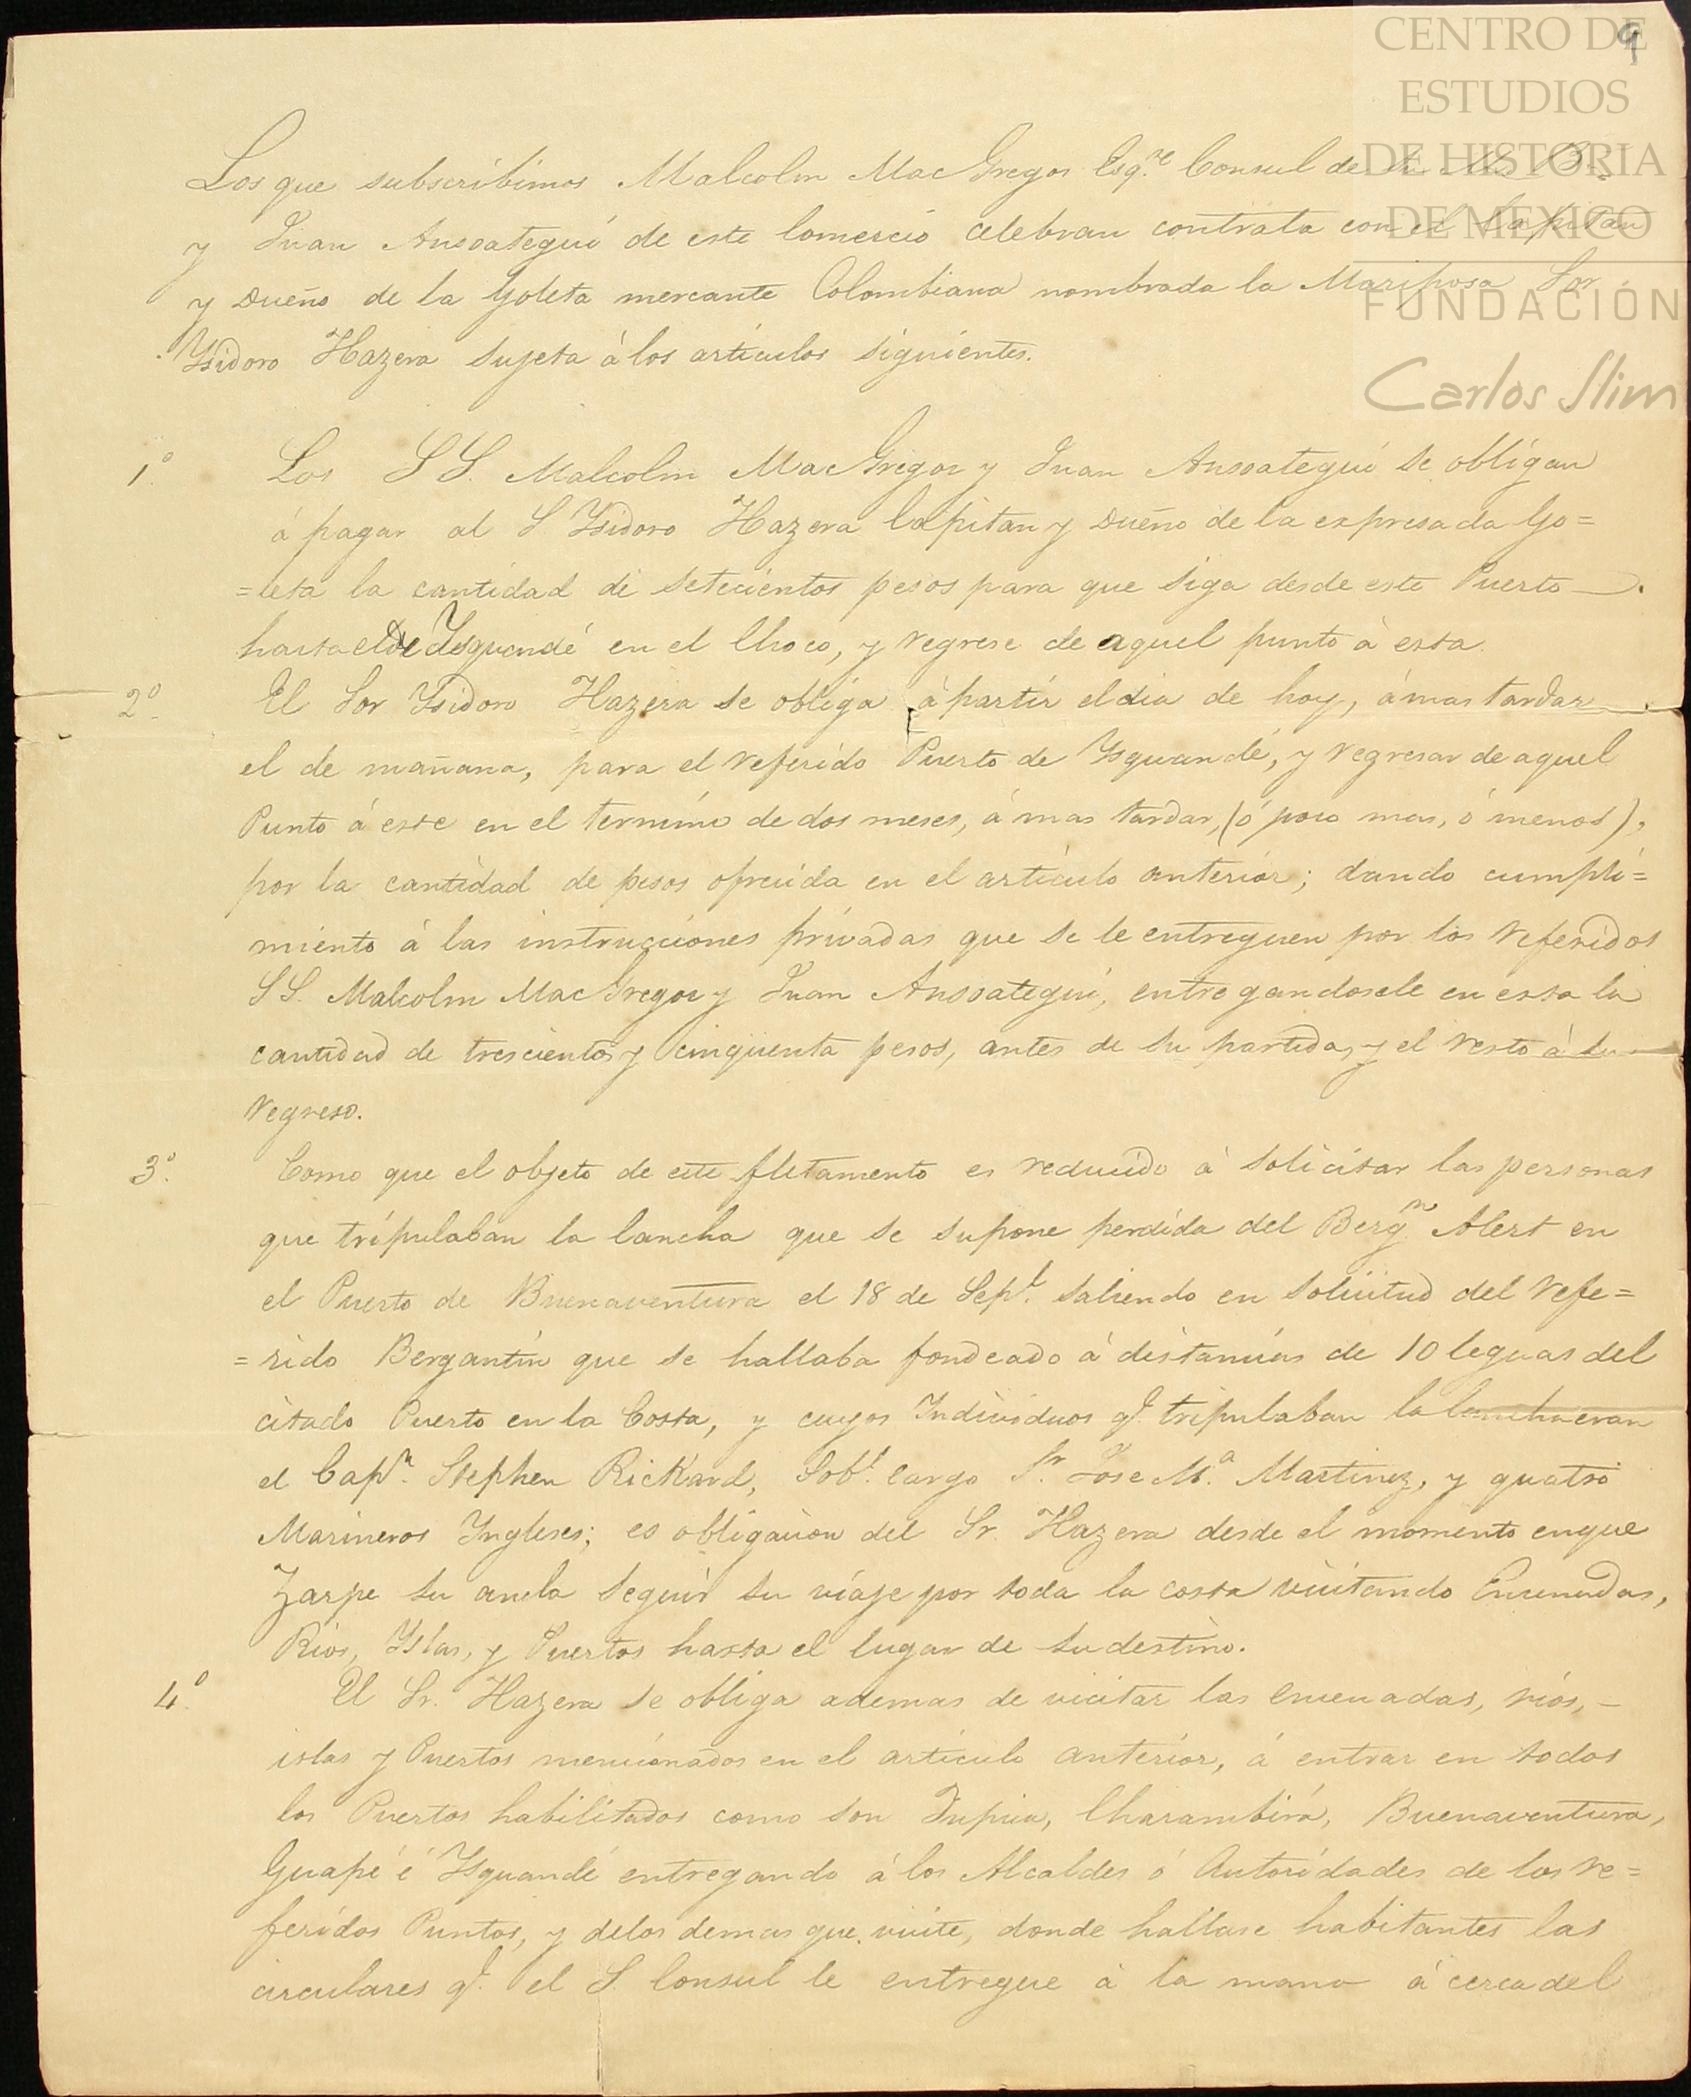 CENTRO DE
ESTUDIOS
DE HISTORIA
DE MEXICO
FUNDACIÓN
Carlos Slim
9
Los que subscribimos Malcolm MacGregor Esq.re Consul de S. M. B.
y Juan Ansoategui de este Comercio celebran contrata con el Capitan
y Dueño de la Goleta mercante Colombiana nombrada la Mariposa Sor
Ysidoro Hazera sujeta á los artículos siguientes.
1º. Los SS. Malcolm MacGregor y Juan Ansoategui se obligan
á pagar al S Ysidoro Hazera Capitan y Dueño de la expresada Go=
=leta la cantidad de setecientos pesos para que siga desde este Puerto
hasta el de Ysguandé en el Choco, y regrese de aquel punto á esta.
2º. El Sor Ysidoro Hazera se obliga á partir el dia de hoy, á mas tardar
el de mañana, para el referido Puerto de Ysguandé, y regresar de aquel
Punto á este en el termino de dos meses, á mas tardar, (ó poco mas, ó menos),
por la cantidad de pesos ofrecida en el artículo anterior; dando cumpli=
miento á las instrucciones privadas que se le entreguen por los referidos
SS. Malcolm MacGregor y Juan Ansoategui, entregandosele en esta la
cantidad de trescientos y cinquenta pesos, antes de su partida, y el resto á su
regreso.
3º. Como que el objeto de este fletamento es reducido á solicitar las personas
que tripulaban la lancha que se supone perdida del Bergn. Alert en
el Puerto de Buenaventura el 18 de Sept. saliendo en solicitud del refe=
=rido Bergantin que se hallaba fondeado á distancias de 10 leguas del
citado Puerto en la Costa, y cuyos Individuos q.e tripulaban la lancha eran
el Capn. Stephen Rickard, Sobe. cargo Sr Jose Ma. Martinez, y quatro
Marineros Yngleses; es obligacion del Sr. Hazera desde el momento en que
Zarpe su ancla seguir su viaje por toda la costa visitando Ensenadas,
Rios, Yslas, y Puertos hasta el lugar de su destino.
4º. El Sr. Hazera se obliga ademas de vicitar las ensenadas, rios,
islas y Puertos mencionados en el artículo anterior, á entrar en todos
los Puertos habilitados como son Tupica, Charambirá, Buenaventura,
Guapé é Ysguandé entregando á los Alcaldes ó Autoridades de los re=
feridos Puntos, y de los demas que visite, donde hallase habitantes las
circulares q.e el S. Consul le entregue á la mano á cerca del